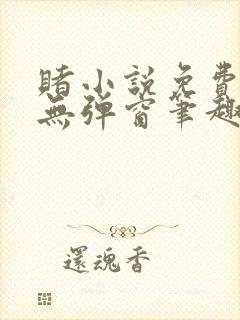 賭小説免費
無彈窗筆趣
還魂香